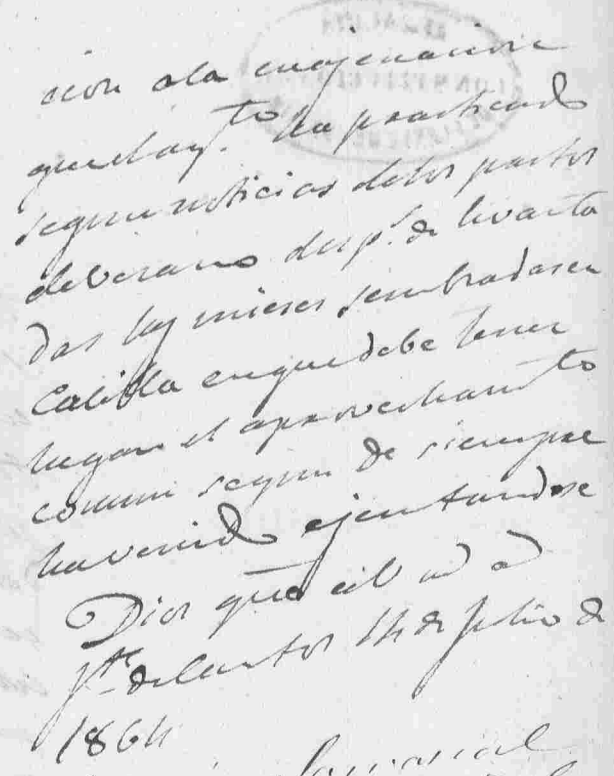 cion a la enagenacion
que el ay.to ha practicado
segun noticias de los pastos
de verano desp.s de levanta
das las mieses sembradas en
Calilla en que debe tener
lugar el aprovecham.to
comun segun de siempre
ha venido ejecutandose
Dios gue á V
F.te de Cantos 14 de Julio de
1864